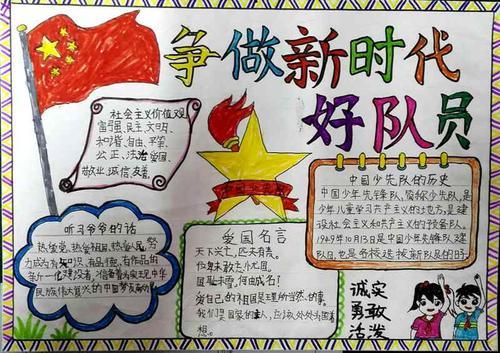 争做新时代
好队员
社会主义价值观
富强、民主、文明、
和谐、自由、平等、
公正、法治、爱国、
敬业、诚信、友善。
中国少先队
听习爷爷的话
热爱党、热爱祖国、热爱人民,努
力成为有知识、有品德、有作为的
新一代建设者,
民族伟大复兴的中国梦
爱国名言
天下兴亡,匹夫有责。
位卑未敢忘忧国。
国耻未雪,何由成名!
爱自己的祖国是理所当然的事。
我们是国家的主人,应该处处为国着
想。
中国少先队的历史
中国少年先锋队,简称少先队,是
少年儿童学习共产主义的地方,是建
设社会主义和共产主义的预备队。
1949年10月13日是中国少年先锋队建
队日,也是各校选拔新队员的时
诚实
勇敢
活泼